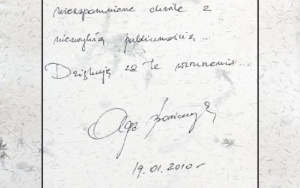 niezapomniane chwile z
niezwykłą publicznością...
Dziękuję za te wzruszenia...
19.01.2010 r